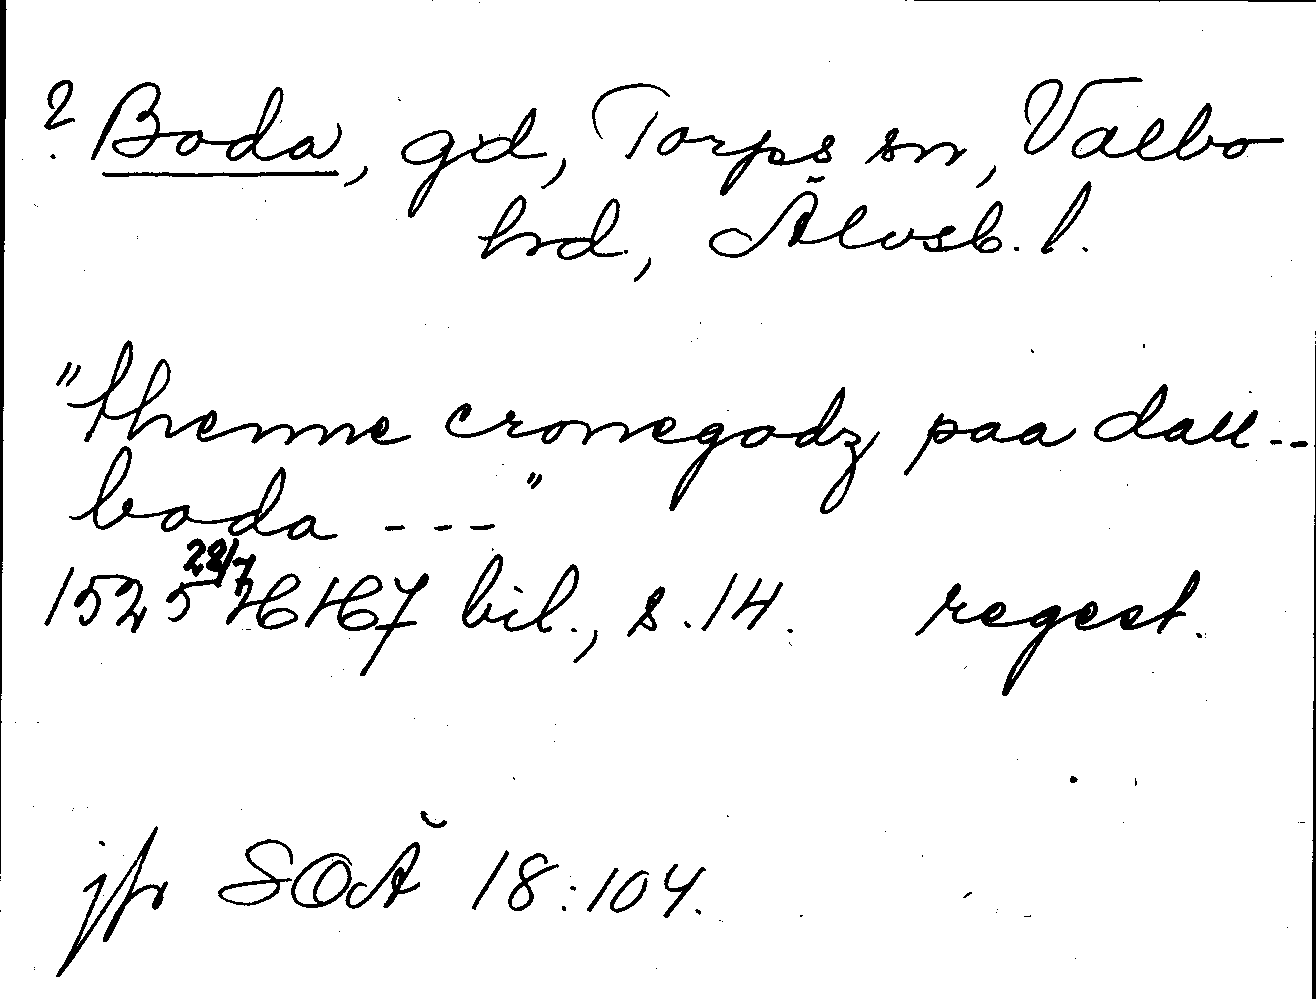 ? Boda, gd, Torps sn, Valbo
hd, Älvsb. l.
"thenne cronegodz paa dall --
boda ---"
1525 28/7 HH7 bil., s. 14. regest.
jfr SOÄ 18:104.